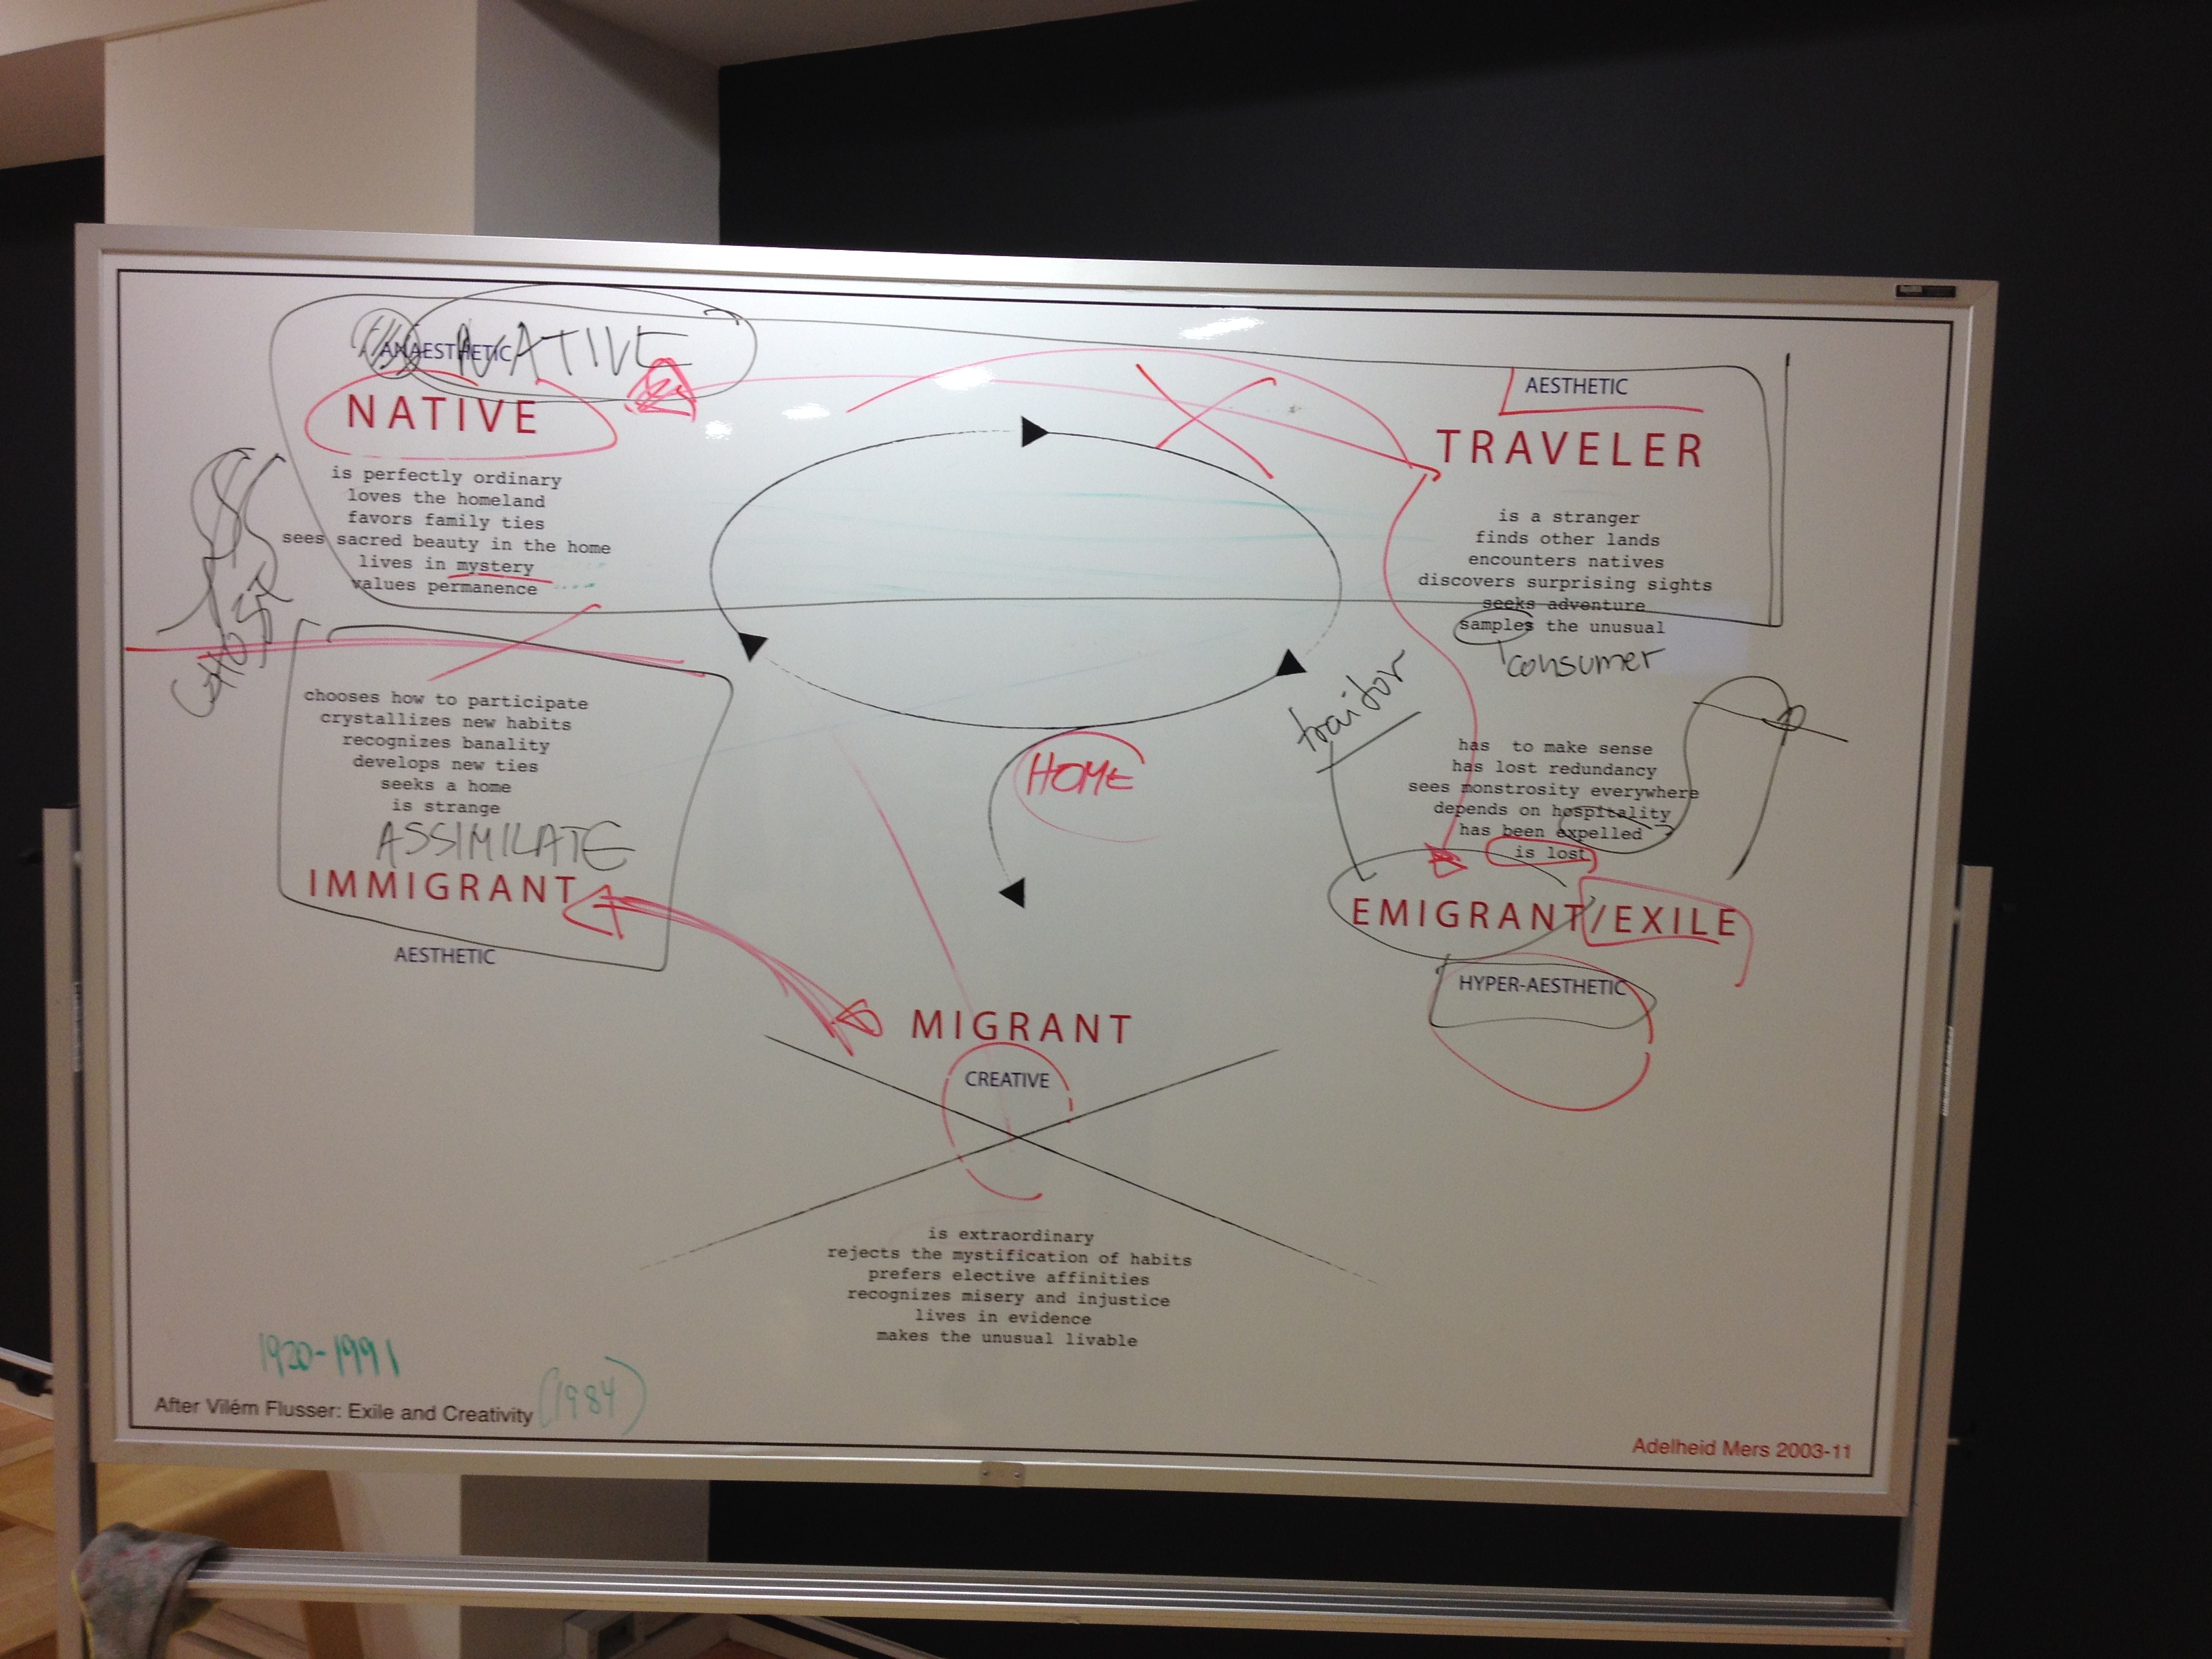 ANAESTHETIC
NATIVE
NATIVE
is perfectly ordinary
loves the homeland
favors family ties
sees sacred beauty in the home
lives in mystery
values permanence
GHOST
AESTHETIC
TRAVELER
is a stranger
finds other lands
encounters natives
discovers surprising sights
seeks adventure
samples the unusual
consumer
chooses how to participate
crystallizes new habits
recognizes banality
develops new ties
seeks a home
is strange
ASSIMILATE
IMMIGRANT
AESTHETIC
HOME
traitor
has to make sense
has lost redundancy
sees monstrosity everywhere
depends on hospitality
has been expelled
is lost
EMIGRANT/EXILE
HYPER-AESTHETIC
MIGRANT
CREATIVE
is extraordinary
rejects the mystification of habits
prefers elective affinities
recognizes misery and injustice
lives in evidence
makes the unusual livable
1920-1991
After Vilém Flusser: Exile and Creativity (1984)
Adelheid Mers 2003-11